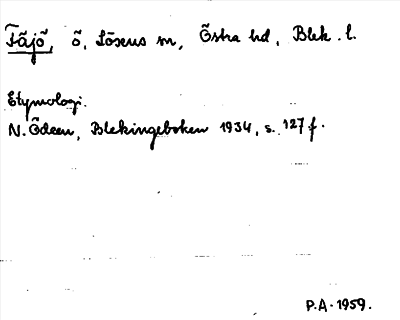 Fäjö, ö, Lösens sn, Östra hd, Blek. l.
Etymologi.
N. Ödeen, Blekingeboken 1934, s. 127 f.
P.A. 1959.